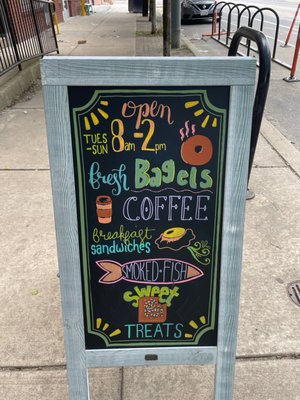 open
TUES
-SUN
8am-2pm
fresh Bagels
COFFEE
breakfast
sandwiches
SMOKED-FISH
Sweet
TREATS